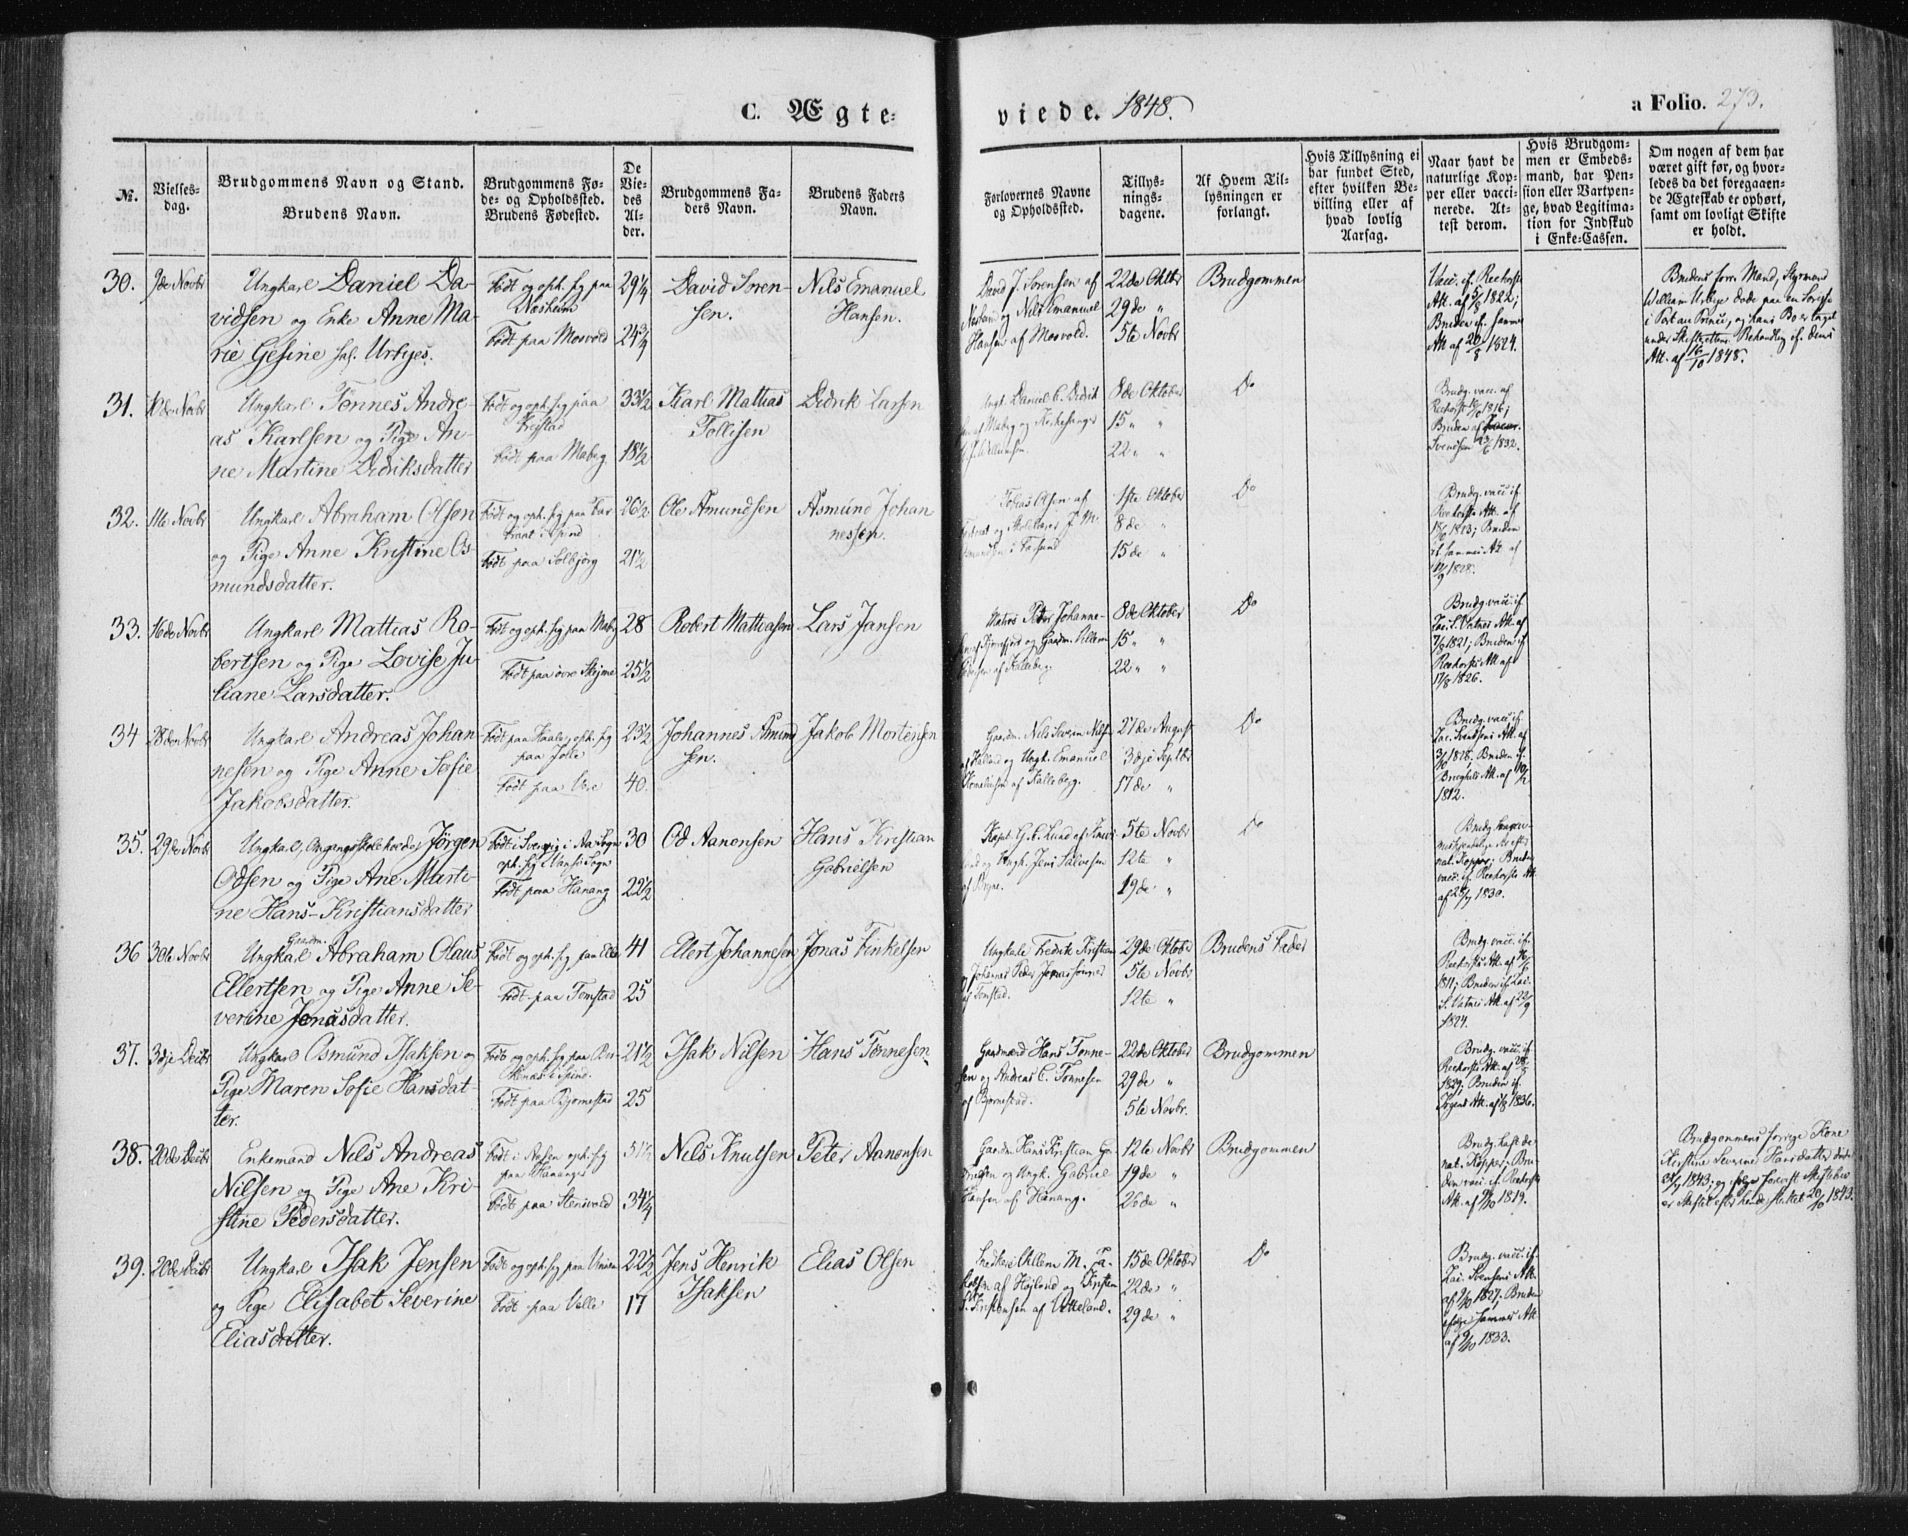 C. Ægte-
viede. 1848.
a Folio. 273.
№.
Vielses-
dag.
Brudgommens Navn og Stand.
Brudens Navn.
Brudgommens Fø-
de- og Opholdssted.
Brudens Fødested.
De
Vie-
des
Al-
der.
Brudgommens Fa-
ders Navn.
Brudens Faders
Navn.
Forlovernes Navne
og Opholdssted.
Tillys-
nings-
dagene.
Af Hvem Til-
lysningen er
forlangt.
Hvis Tillysning ei
har fundet Sted,
efter hvilken Be-
villing eller af
hvad lovlig
Aarsag.
Naar havt de
naturlige Kop-
per eller vacci-
nerede. At-
test derom.
Hvis Brudgom-
men er Embeds-
mand, har Pen-
sion eller Vartpen-
ge, hvad Legitima-
tion for Indskud
i Enke-Cassen.
Om nogen af dem har
været gift før, og hvor-
ledes da det foregaaen-
de Ægteskab er ophørt,
samt om lovligt Skifte
er holdt.
30.
9de Novbr
Ungkarl Daniel Da-
vidsen og Enke Anne Ma-
rie Gesine Urbyes.
Født og oph. sig paa
Næsheim
Født paa Mosvold
29¼
24¾
David Soren-
sen.
Nils Emanuel
Hansen.
David J. Sorensen af
og Nils Emanuel
Hansen af Mosvold.
22de Oktbr
29de "
5te Novbr
Brudgommen
Vacc. if. Reehorsts
Att. af 5/8 1822;
Bruden if. samme
Att af 20/8 1824.
Brudens forr. Mand, Styrmand
William Urbye døde paa en Søreise
i Port au Prince, og hans Bo er taget
under Skifterettens Behandling if. dens
Att. af 16/10 1848.
31.
10de Novbr
Ungkarl Tønnes Andre-
as Karlsen og Pige An-
ne Martine Didriksdatter
Født og oph. sig paa
Født paa Maberg
33½
18½
Karl Mathias
Tollisen
Didrik Larsen
Ungk. Daniel C. Didrik
af Maberg og Kirkesanger
8de Oktober
15 " "
22 " "
Do
Brudg. vacc. if
Reehorst 1816;
Bruden af
Svendsen 1832.
32.
11te Novbr
Ungkarl Abraham Olsen
og Pige Anne Kristine Os-
mundsdatter.
Født og oph. sig paa
i Spind
Født paa Solbjørg
26½
21½
Ole Amundsen
Asmund Johan
nessen.
Tobias Olsen af
i Farsund
1ste Oktober
8de "
15de "
Do
Brudg. vacc. if
Reehorsts Att. af
1823; Bruden
if sammes Att af
1828.
33.
16de Novbr
Ungkarl Mattias Ro-
bertsen og Pige Lovise Ju-
liane Larsdatter.
Født og oph. sig paa Maberg
Født paa øvre Skejme
28
25½
Robert Mathiasen
Lars Jansen
Peter Johanne-
og Gaardm. Villem
af Kalleberg.
8de Oktober
15 " "
22 " "
Do
Brudg. vacc. if.
Zac. L. Vatnes Att. af
1821; Bruden if
Reehorsts Att af
17/8 1826.
34
28de Novbr
Ungkarl Andreas Johan-
nesen og Pige Anne Sofie
Jakobsdatter.
Født paa oph. sig
paa Jølle
Født paa Vere
23½
40.
Johannes Amund
sen.
Jakob Mortensen
Gaardm. Nils Severin Nils-
af Halland og Ungk. Emanuel
Kornelinsen af Kalleberg.
27de August
3dje Septbr
17de "
Do
Brudg. vacc. if.
Zac. Svendsens Att. af
1828; Bruden if.
Att. af
1812.
35.
29de Novbr
Ungkarl, Omgangsskoleholder Jørgen
Odsen og Pige Ane Marti-
ne Hans-Kristiansdatter
Født i i Sogn
oph. sig i Vanse Sogn
Født paa Hanang
30
22½
Od Aanonsen
Hans Kristian
Gabrielsen
Kapt. G. C. Lund af
og Ungk. Jens Salvesen
af Bryne.
5te Novbr
12te "
19de "
Do
Brudg.
nat. Kopper; Bruden
vacc. if. Reehorsts Att.
af 1830.
36
30te Novbr
Gaardm.
Ungkarl Abraham Olaus
Ellertsen og Pige Anne Se-
verine Jonasdatter.
Født og oph. sig paa
Født paa Tomstad
41
25
Ellert Johannesen
Jonas Finkelsen
Ungkarle Fredrik Kristian
og Johannes Peder Jonassønner
af Tomstad.
29de Oktober
5te Novbr
12te "
Brudens Fader
Brudg. vacc. if.
Reehorsts Att. af
1811; Bruden if. Zac.
L. Vatnes Att. af 22/9
1824.
37.
3dje Decbr
Ungkarl Osmund Isaksen og
Pige Maren Sofie Hansdat-
ter.
Født og oph. sig paa
i Spind.
Født paa Bjørnestad
21½
25
Isak Nilsen
Hans Tønnesen
Gaardmænd Hans Tønne-
sen og Andreas C. Tønnesen
af Bjørnestad.
22de Oktober
29de "
5te Novbr.
Brudgommen
Brudg. vacc. if
Reehorsts Att. af
1829; Bruden if.
Att. af 1836.
38.
20de Decbr
Enkemand Nils Andreas
Nilsen og Pige Ane Kri-
stine Pedersdatter.
Født i oph. sig
paa Hananger
Født paa Stensvold
51½
34¼
Nils Knutsen
Peter Aanonsen
Gaardm. Hans Kristian Ga-
brielsen og Ungk. Gabriel
Hansen af Hanang.
12te Novbr
19de "
26de "
Brudgommen
Brudg. haft de
nat. Kopper; Bru-
den vacc. if. Reehorsts
Att. af 1819.
Brudgommens forrige Kone
Kirstine Severine Hansdatter døde
1843; og ifølge
er Skiftet efter hende sluttet 20/10 1843.
39.
20de Decbr
Ungkarl Isak Jensen
og Pige Elisabet Severine
Eliasdatter.
Født og oph. sig paa
Født paa Velle
22½
17
Jens Henrik
Isaksen
Elias Olsen
Snedker Villem M.
af Højland og Kristen
Kristensen af Vatneland.
15de Oktober
22de "
29de "
Do
Brudg. vacc. if.
Zac. Svensens Att.
af 1827. Bruden
ifølge sammes Att.
af 1833.